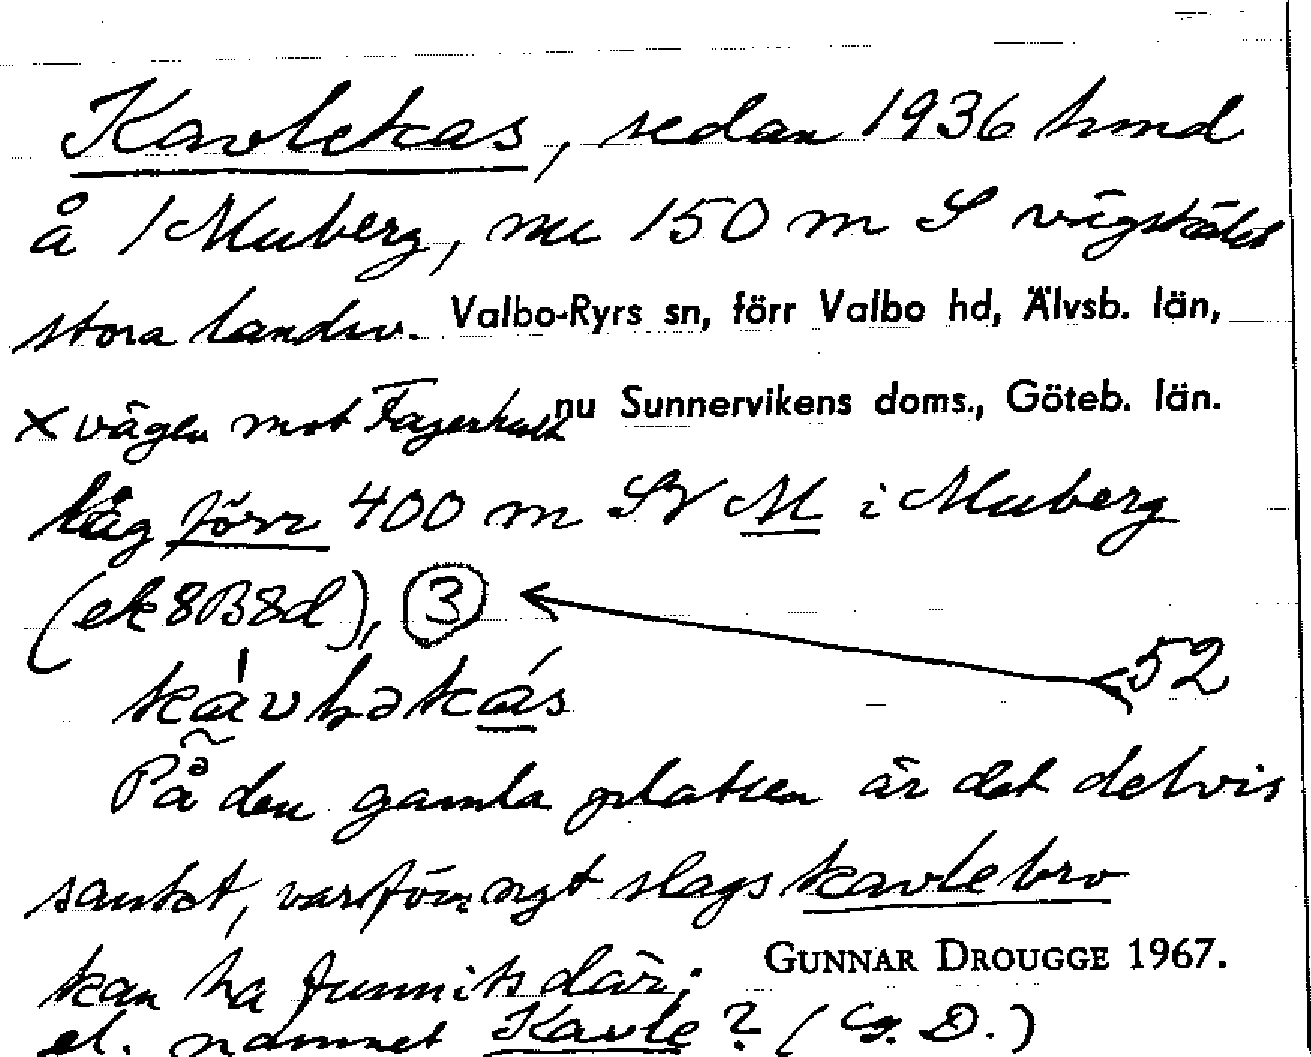 Kavlekas, sedan 1936 hmd
å 1 Muberg, nu 150 m S vägskälet
stora landsv. Valbo-Ryrs sn, förr Valbo hd, Älvsb. län,
x vägen mot Fagerhult nu Sunnervikens doms., Göteb. län.
låg förr 400 m SV M i Muberg
(ek 8B8d), ③
52
På den gamla platsen är det delvis
sankt, varför ngt slags kavlebro
kan ha funnits där;
GUNNAR DROUGGE 1967.
el. namnet Kavle? (G. D.)